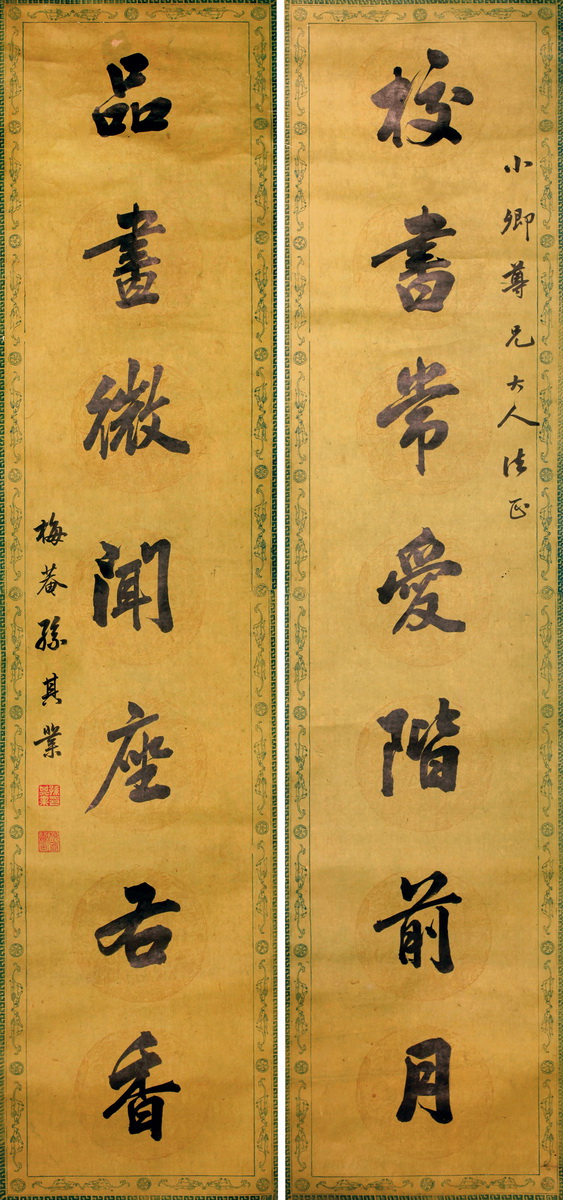 小卿尊兄大人法正
校書常愛階前月
品畫微聞座右香
梅菴孫其業